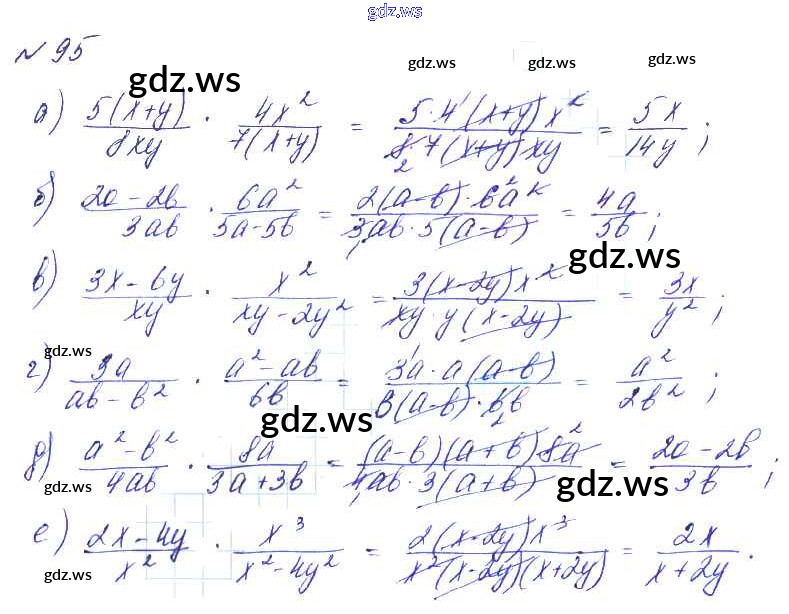 gdz.ws
№ 95
gdz.ws gdz.ws gdz.ws
а) 5(x+y)/8xy · 4x²/7(x+y) = 5·4(x+y)x²/8·7(x+y)xy = 5x/14y ;
б) 2a-2b/3ab · 6a²/5a-5b = 2(a-b)·6a²/3ab·5(a-b) = 4a/5b ;
gdz.ws
в) 3x-6y/xy · x²/xy-2y² = 3(x-2y)x²/xy·y(x-2y) = 3x/y² ;
gdz.ws
г) 3a/ab-b² · a²-ab/6b = 3a·a(a-b)/b(a-b)·6b = a²/2b² ;
gdz.ws
д) a²-b²/4ab · 8a/3a+3b = (a-b)(a+b)8a/4ab·3(a+b) = 2a-2b/3b ;
gdz.ws gdz.ws
е) 2x-4y/x² · x³/x²-4y² = 2(x-2y)x³/x²(x-2y)(x+2y) = 2x/x+2y .
gdz.ws